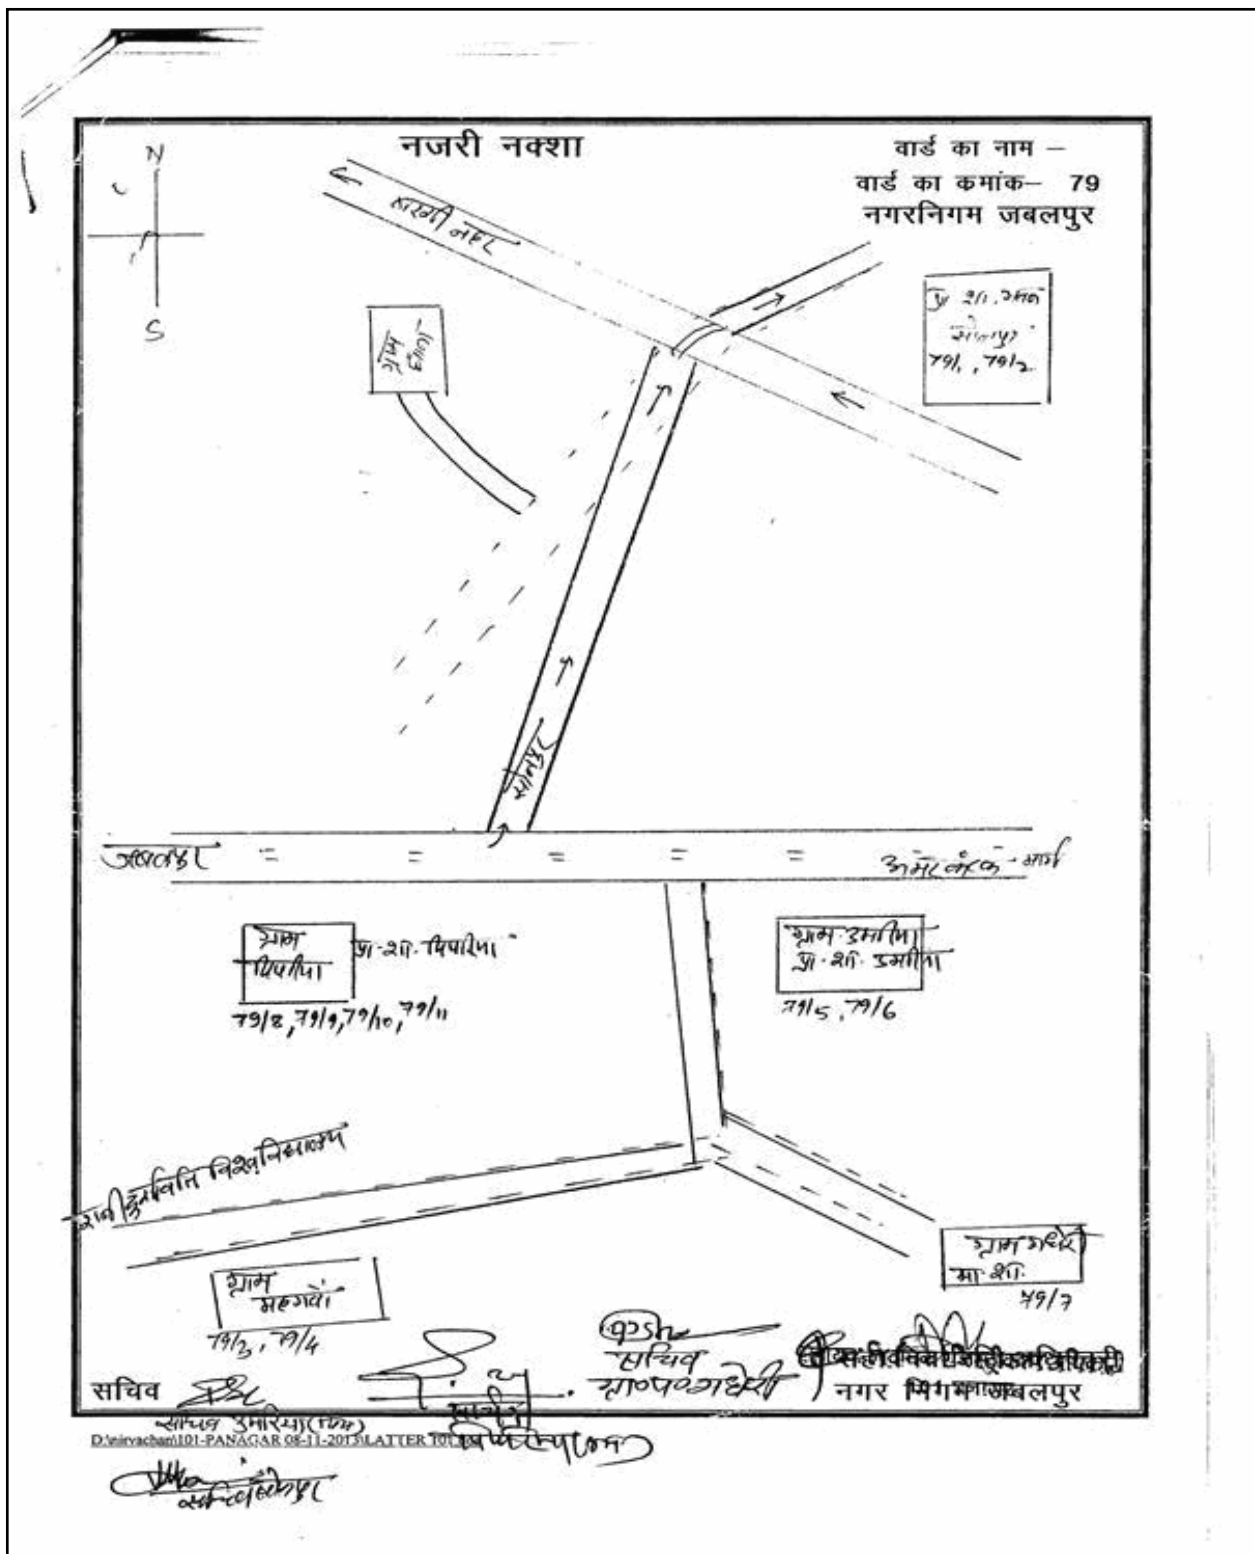 नजरी नक्शा
वार्ड का नाम –
वार्ड का कमांक– 79
नगरनिगम जबलपुर
N
S
बरगी नहर
प्रा शा. भवन
सोनपुर
79/1, 79/2
सोनपुर
जबलपुर
अमरकंटक - मार्ग
ग्राम
पिपरिया
प्रा. शा. पिपरिया
79/8, 79/9, 79/10, 79/11
ग्राम उमरिया
प्रा. शा. उमरिया
79/5, 79/6
रानी दुर्गावति विश्वविद्यालय
ग्राम
महगवाँ
79/3, 79/4
ग्राम गधेरी
मा. शा.
79/7
सचिव
ग्रा०पं० गधेरी
सचिव
नगर निगम जबलपुर
सचिव उमरिया
सचिव
D:\nirvachan\101-PANAGAR 08-11-2013\LATTER 101
सचिव सोनपुर